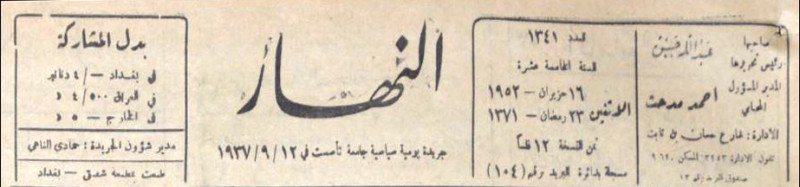 صاحبها
رئيس تحريرها
المدير المسؤول
المحامي
احمد مدحت
الادارة : شارع حسان بن ثابت
تلفون الادارة ٣٢٥٣ المسكن
صندوق البريد رقم ١٣
العدد ١٣٤١
السنة الخامسة عشرة
١٦ حزيران – ١٩٥٢
الاثنين
٢٣ رمضان – ١٣٧١
ثمن النسخة ١٢ فلسا
مسجلة بدائرة البريد برقم (١٠٤)
النهار
جريدة يومية سياسية جامعة تأسست في ١٩٣٧/٩/١٢
بدل المشاركة
في بغداد –/٤ دنانير
في العراق ٤/٥٠٠ د
في الخارج –/٥ د
مدير شؤون الجريدة : حمادي الناهي
طبعت بمطبعة شفيق – بغداد